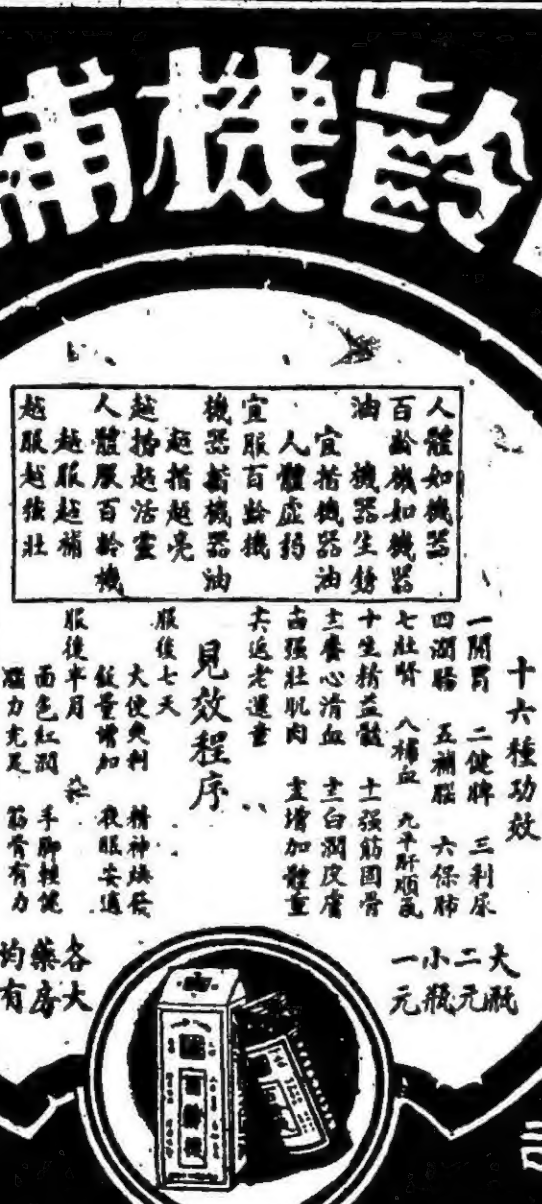 齡機補
人體如機器
百齡機如機器
油　機器生銹
宜揩機器油
人體虛弱
宜服百齡機
機器揩機器油
越揩越亮
越揩越活靈
人體服百齡機
越服越補
越服越強壯
十六種功效
一開胃　二健脾　三利尿
四潤腸　五補腦　六保肺
七壯腎　八補血　九平肝順氣
十生精益髓　十一强筋固骨
十二養心清血　十三白潤皮膚
十四强壯肌肉　十五增加體重
十六返老還童
見效程序
服後七天
大便爽利　精神煥發
飯量增加　夜眠安適
服後半月
面色紅潤　手脚輕健
腦力充足　筋骨有力
大瓶
二元
小瓶
一元
各大
藥房
均有